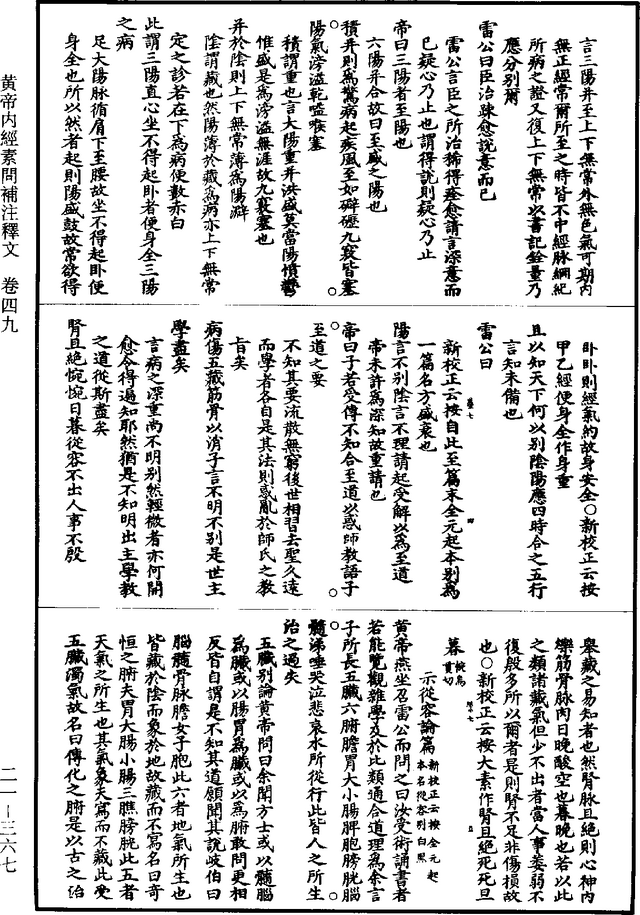 言三陽并至上下無常外無色氣可期内
無正經常爾所至之時皆不中經脉綱紀
所病之證又復上下無常以書記銓量乃
應分別爾
雷公曰臣治踈愈說意而已
雷公言臣之所治稀得痊愈請言深意而
已疑心乃止也謂得說則疑心乃止
帝曰三陽者至陽也
六陽并合故曰至盛之陽也
積并則為驚病起疾風至如礔礰九竅皆塞
陽氣滂溢乾嗌喉塞
積謂重也言大陽重并洪盛莫當陽憤鬱
惟盛是為滂溢無涯故九竅塞也
并於陰則上下無常薄為腸澼
陰謂藏也然陽薄於藏為病亦上下無常
定之診若在下為病便數赤白
此謂三陽直心坐不得起卧者便身全三陽
之病
足大陽脉循肩下至腰故坐不得起卧便
身全也所以然者起則陽盛鼓故常欲得
卧卧則經氣約故身安全○新校正云按
甲乙經便身全作身重
且以知天下何以別陰陽應四時合之五行
言知未備也
雷公曰
新校正云按自此至篇末全元起本別為
一篇名方盛衰也
陽言不別陰言不理請起受解以為至道
帝未許為深知故重請也
帝曰子若受傳不知合至道以惑師教語子
至道之要
不知其要流散無窮後世相習去聖久遠
而學者各自是其法則惑亂於師氏之教
旨矣
病傷五藏筋骨以消子言不明不別是世主
學盡矣
言病之深重尚不明別然輕微者亦何開
愈令得遍知耶然猶是不知明出主學教
之道從斯盡矣
腎且絶惋惋日暮從容不出人事不殷
舉藏之易知者也然腎脉且絶則心神内
爍筋骨脉肉日晚酸空也暮晚也若以此
之類諸藏氣但少不出者當人事萎弱不
復殷多所以爾者是則腎不足非傷損故
也○新校正云按太素作腎且絶死死日
暮
示從容論篇 新校正云按全元起本名從容別白黑
黄帝燕坐召雷公而問之曰汝受術誦書者
若能覽觀雜學及於比類通合道理為余言
子所長五臟六腑膽胃大小腸脾胞膀胱腦
髓涕唾哭泣悲哀水所從行此皆人之所生
治之過失
五臟別論黄帝問曰余聞方士或以髓腦
為臟或以腸胃為臟或以為腑敢問更相
反皆自謂是不知其道願聞其說岐伯曰
腦髓骨脉膽女子胞此六者地氣所生也
皆藏於陰而象於地故藏而不寫名曰奇
恒之腑夫胃大腸小腸三瞧膀胱此五者
天氣之所生也其氣象天寫而不藏此受
五臟濁氣故名曰傳化之腑是以古之治
黄帝内經素問補注釋文 卷四九
二一—三六七